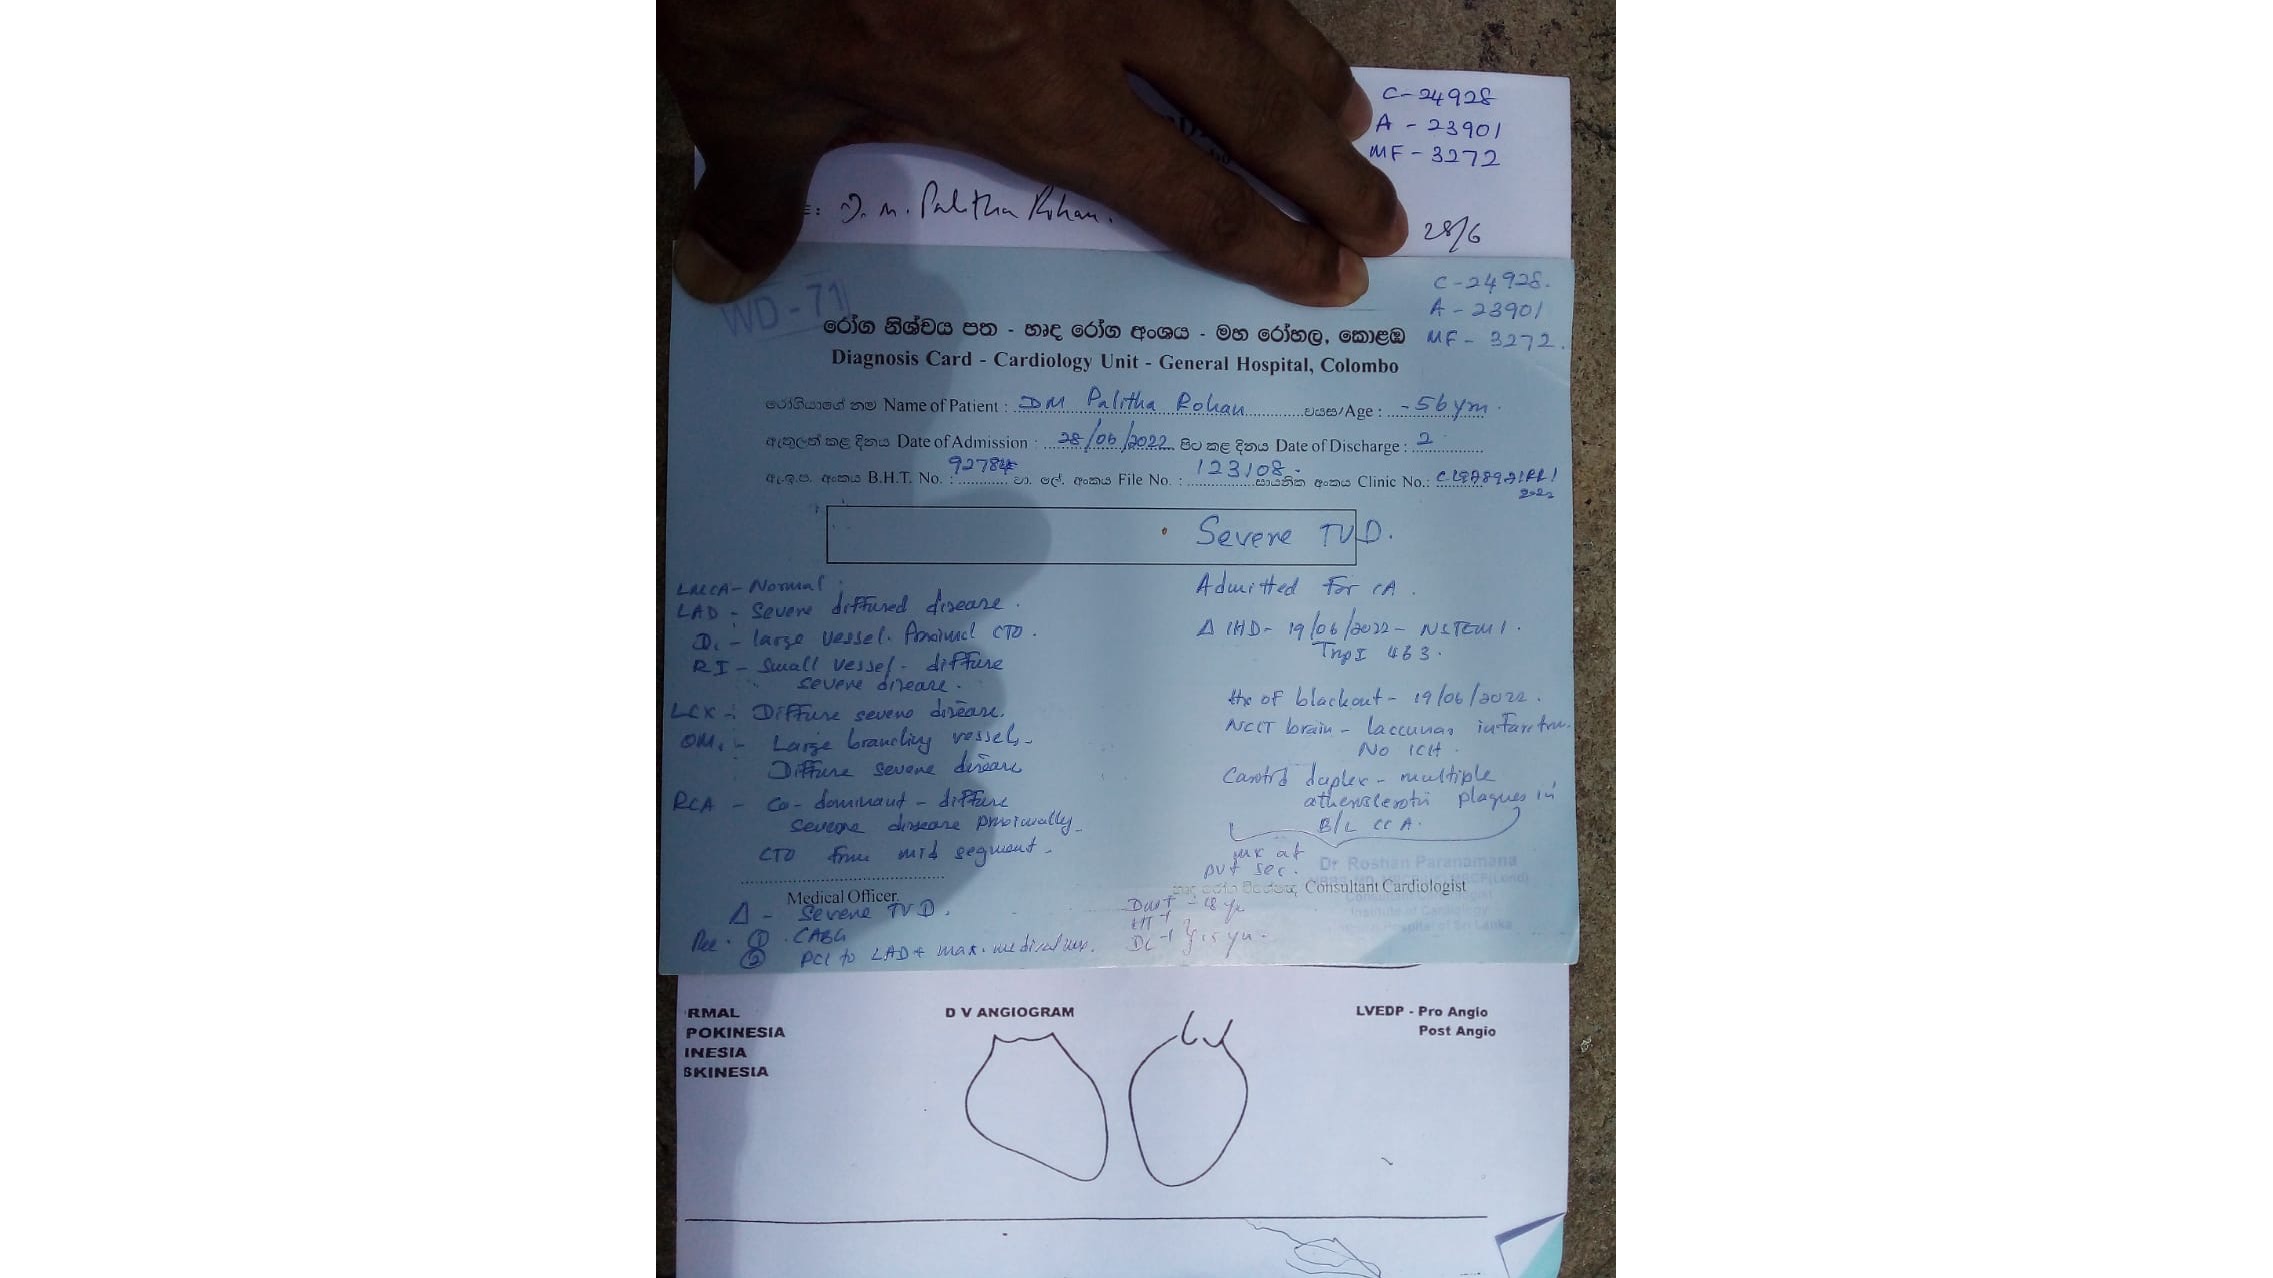 C-24928
A - 23901
MF - 3272
D. M. Palitha Rohan.
28/6
WD-71
C-24928.
A - 23901
MF - 3272.
රෝග නිශ්චය පත - හෘද රෝග අංශය - මහ රෝහල, කොළඹ
Diagnosis Card - Cardiology Unit - General Hospital, Colombo
රෝගියාගේ නම Name of Patient : DM Palitha Rohan වයස/Age : - 56 yrs.
ඇතුලත් කළ දිනය Date of Admission : 28/06/2022 පිට කළ දිනය Date of Discharge : 2
ඇ.ඉ.ප. අංකය B.H.T. No. : 92784 වා. ලේ. අංකය File No. : 123108. සායනික අංකය Clinic No.:
2022
Severe TVD.
LMCA - Normal
LAD - Severe diffused disease.
D1 - large vessel. CTO.
RI - Small vessel - diffuse
severe disease.
LCX - Diffuse severe disease.
OM1 - Large branching vessels
Diffuse severe disease
RCA - Co-dominant - diffuse
severe disease proximally
CTO from mid segment.
Admitted For CA.
Δ IHD - 19/06/2022 - NSTEMI.
TropI 463.
Hx of blackout - 19/06/2022.
NCCT brain - laccunar
No ICH.
Carotid duplex - multiple
plaques in
B/L CCA.
mx at
pvt sec.
Dr Roshan Paranamana
Medical Officer.
Consultant Cardiologist
Δ - Severe TVD.
Rec. ① CABG
② PCI to LAD + max. medical mx.
RMAL
POKINESIA
INESIA
SKINESIA
D V ANGIOGRAM
LVEDP - Pro Angio
Post Angio